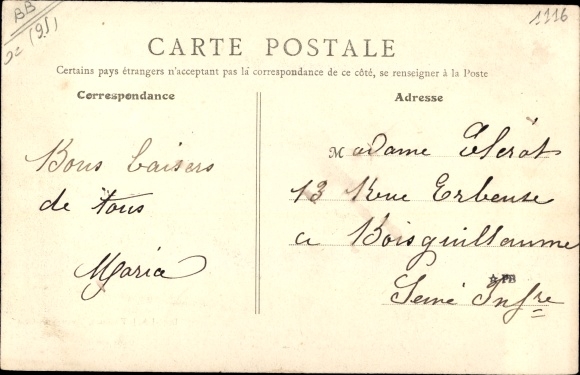 BB
(91)
1116
CARTE POSTALE
Certains pays étrangers n'acceptant pas la correspondance de ce côté, se renseigner à la Poste
Correspondance
Bons baisers
de tous
Maria
Adresse
Madame Clérot
13 Rue Erbeuse
a Boisguillaume
Seine Infre